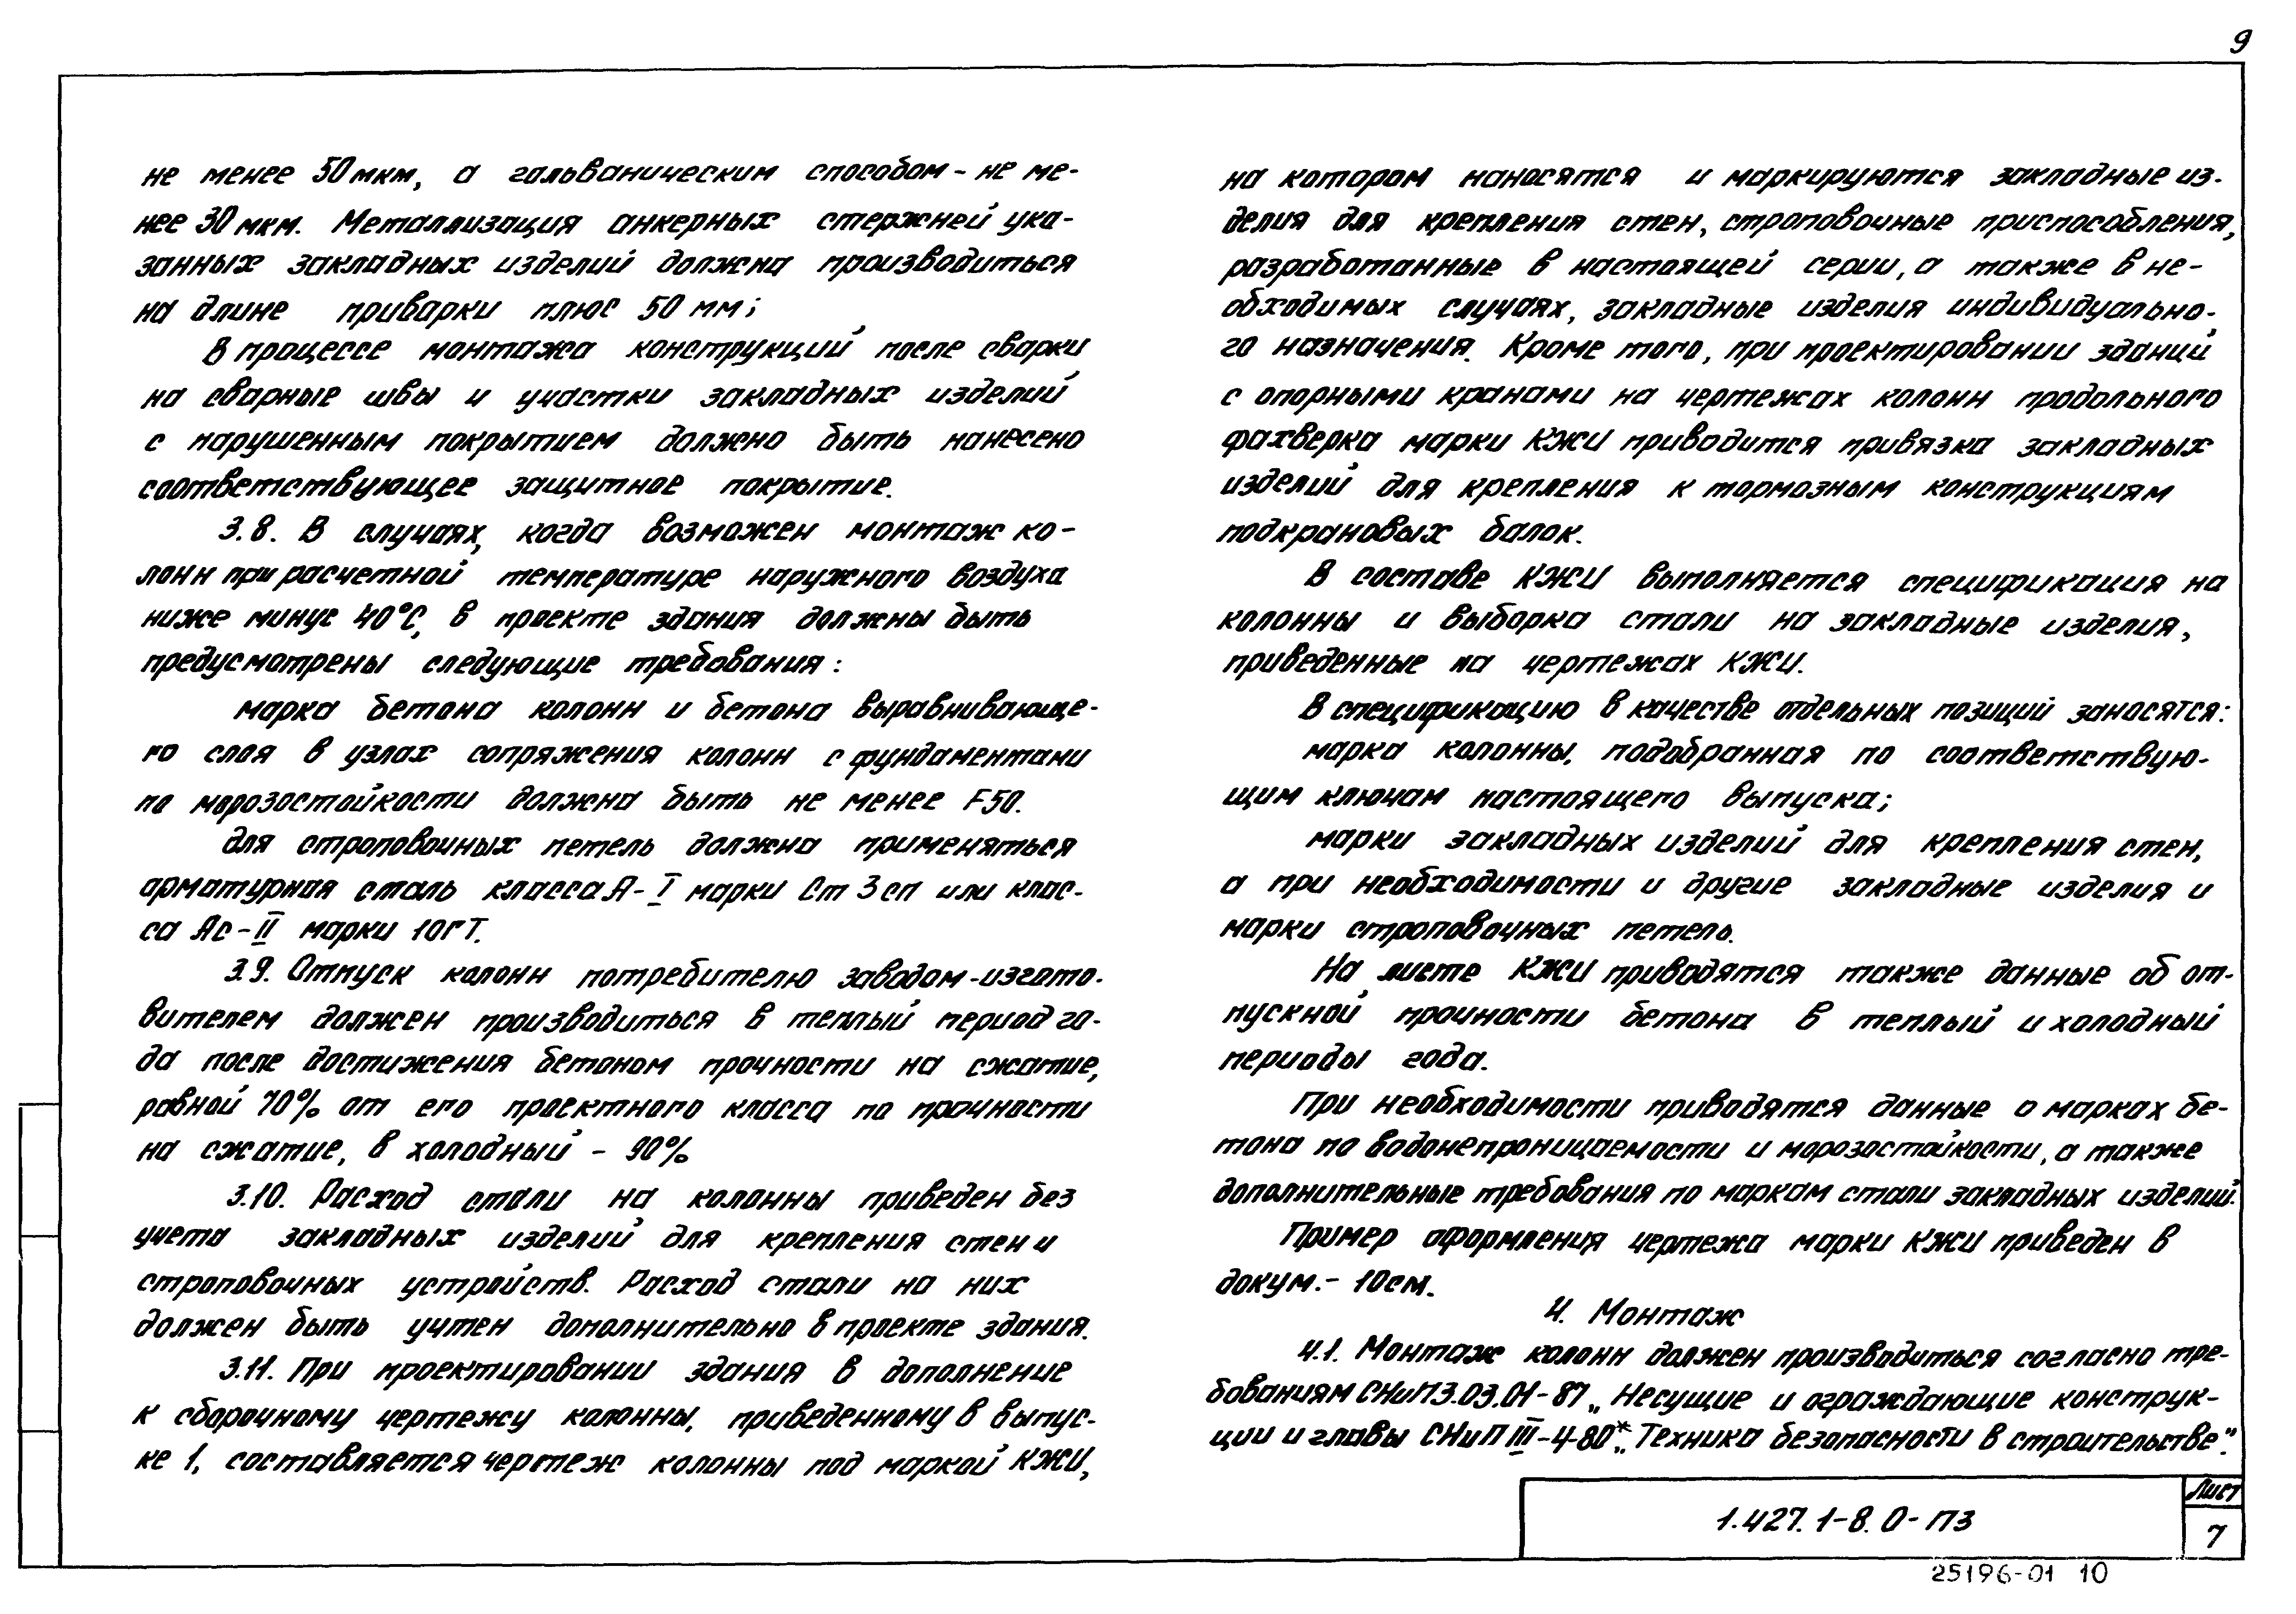 9
не менее 50 мкм, а гальваническим способом - не ме-
нее 30 мкм. Металлизация анкерных стержней ука-
занных закладных изделий должна производиться
на длине приварки плюс 50 мм;
В процессе монтажа конструкций после сварки
на сварные швы и участки закладных изделий
с нарушенным покрытием должно быть нанесено
соответствующее защитное покрытие.
3.8. В случаях, когда возможен монтаж ко-
лонн при расчетной температуре наружного воздуха
ниже минус 40°С, в проекте здания должны быть
предусмотрены следующие требования:
марка бетона колонн и бетона выравнивающе-
го слоя в узлах сопряжения колонн с фундаментами
по морозостойкости должна быть не менее F50.
Для строповочных петель должна применяться
арматурная сталь класса А-I марки Ст 3 сп или клас-
са Ас-II марки 10ГТ.
3.9. Отпуск колонн потребителю заводом-изгото-
вителем должен производиться в теплый период го-
да после достижения бетоном прочности на сжатие,
равной 70% от его проектного класса по прочности
на сжатие, в холодный - 90%
3.10. Расход стали на колонны приведен без
учета закладных изделий для крепления стен и
строповочных устройств. Расход стали на них
должен быть учтен дополнительно в проекте здания.
3.11. При проектировании здания в дополнение
к сборочному чертежу колонны, приведенному в выпус-
ке 1, составляется чертеж колонны под маркой КЖИ,
на котором наносятся и маркируются закладные из-
делия для крепления стен, строповочные приспособления,
разработанные в настоящей серии, а также в не-
обходимых случаях, закладные изделия индивидуально-
го назначения. Кроме того, при проектировании зданий
с опорными кранами на чертежах колонн продольного
фахверка марки КЖИ приводится привязка закладных
изделий для крепления к тормозным конструкциям
подкрановых балок.
В составе КЖИ выполняется спецификация на
колонны и выборка стали на закладные изделия,
приведенные на чертежах КЖИ.
В спецификацию в качестве отдельных позиций заносятся:
марка колонны, подобранная по соответствую-
щим ключам настоящего выпуска;
марки закладных изделий для крепления стен,
а при необходимости и другие закладные изделия и
марки строповочных петель.
На листе КЖИ приводятся также данные об от-
пускной прочности бетона в теплый и холодный
периоды года.
При необходимости приводятся данные о марках бе-
тона по водонепроницаемости и морозостойкости, а также
дополнительные требования по маркам стали закладных изделий.
Пример оформления чертежа марки КЖИ приведен в
докум.- 10см.
4. Монтаж
4.1. Монтаж колонн должен производиться согласно тре-
бованиям СНиП 3.03.01-87 „Несущие и ограждающие конструк-
ции и главы СНиП III-4-80* „Техника безопасности в строительстве".
1.427.1-8.0-ПЗ
Лист
7
25196-01 10